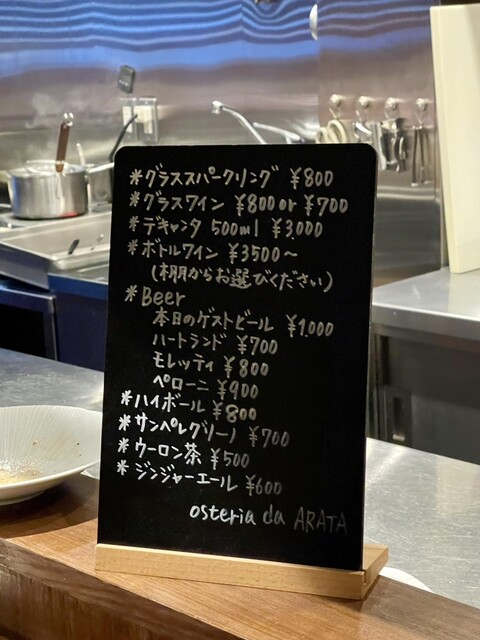 *グラススパークリング ¥800
*グラスワイン ¥800 or ¥700
*デキャンタ 500ml ¥3,000
*ボトルワイン ¥3500～
(棚からお選びください)
*Beer
本日のゲストビール ¥1,000
ハートランド ¥700
モレッティ ¥800
ペローニ ¥900
*ハイボール ¥800
*サンペレグリーノ ¥700
*ウーロン茶 ¥500
*ジンジャーエール ¥600
osteria da ARATA